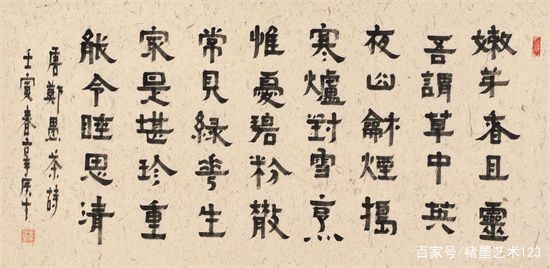 嫩芽香且靈
吾謂草中英
夜臼龢煙搗
寒爐對雪烹
惟憂碧粉散
常見綠花生
冣是堪珍重
能令睡思清
唐鄭愚茶詩
壬寅春
百家号/楮墨艺术123